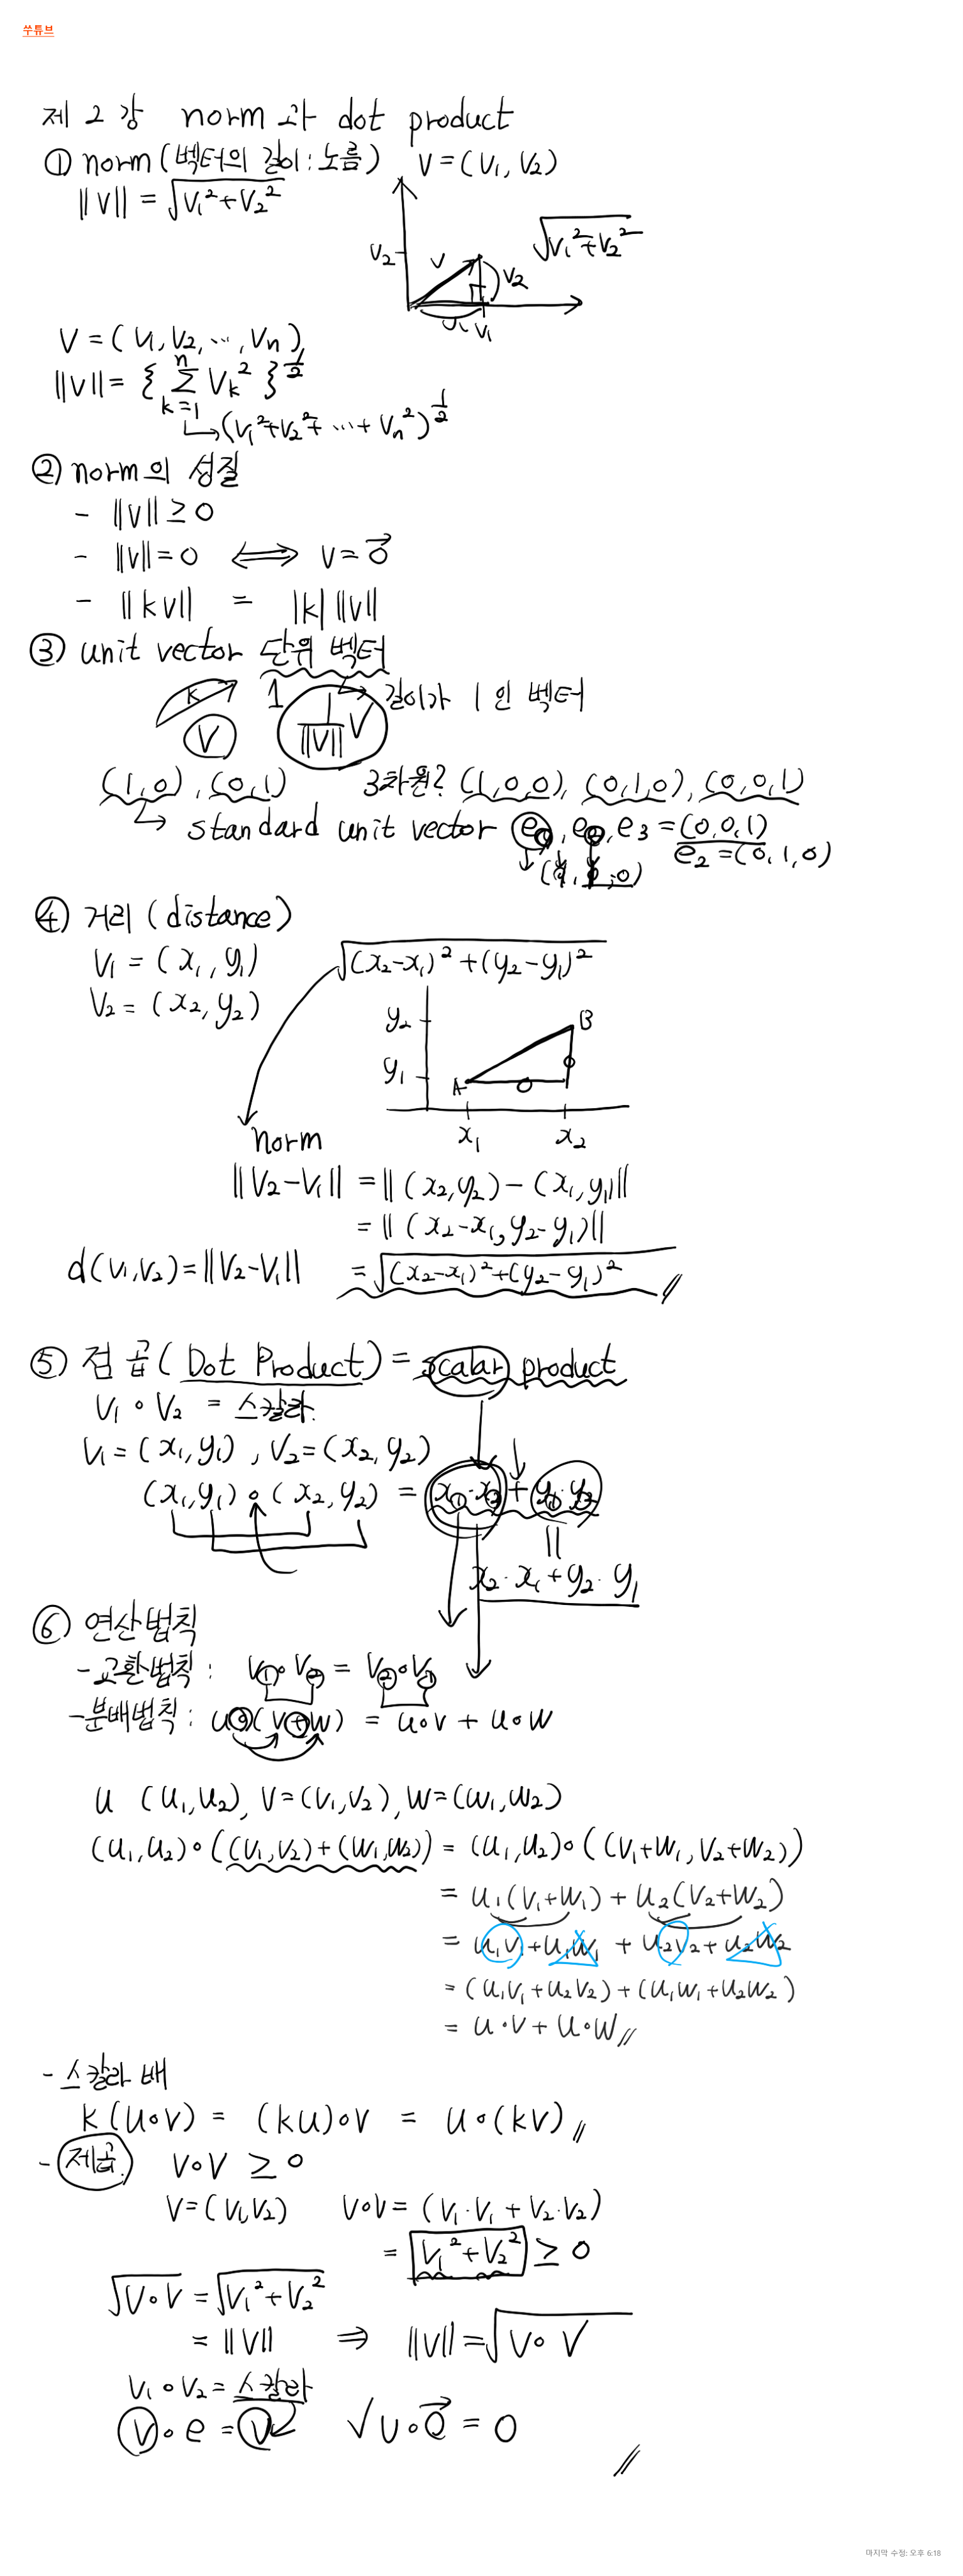 쑤튜브
제 2 강 norm 과 dot product
① norm (벡터의 길이 : 노름) V = (V₁, V₂)
||V|| = √(V₁² + V₂²)
√(V₁² + V₂²)
V₂ V V₂
V₁ V₁
V = (V₁, V₂, …, Vn)
||V|| = { Σ(k=1, n) Vk² }^(1/2)
↳ (V₁² + V₂² + … + Vn²)^(1/2)
② norm의 성질
- ||V|| ≥ 0
- ||V|| = 0 ⟺ V = 0⃗
- ||kV|| = |k| ||V||
③ unit vector 단위 벡터
↳ 길이가 1 인 벡터
K 1
V 1/||V|| V
(1,0), (0,1) 3차원? (1,0,0), (0,1,0), (0,0,1)
↳ standard unit vector e , e , e₃ = (0,0,1)
e₂ = (0,1,0)
④ 거리 (distance)
V₁ = (x₁, y₁) √((x₂-x₁)² + (y₂-y₁)²)
V₂ = (x₂, y₂)
y₂ B
y₁ A
x₁ x₂
norm
||V₂-V₁|| = ||(x₂,y₂) - (x₁,y₁)||
= ||(x₂-x₁, y₂-y₁)||
d(V₁,V₂) = ||V₂-V₁|| = √((x₂-x₁)² + (y₂-y₁)²) //
⑤ 점 곱 (Dot Product) = scalar product
V₁ ∘ V₂ = 스칼라.
V₁ = (x₁, y₁), V₂ = (x₂, y₂)
(x₁, y₁) ∘ (x₂, y₂) = x₁·x₂ + y₁·y₂
||
x₂·x₁ + y₂·y₁
⑥ 연산법칙
- 교환법칙 : V₁ ∘ V₂ = V₂ ∘ V₁
- 분배법칙 : u∘(v+w) = u∘v + u∘w
u (u₁,u₂), V=(V₁,V₂), W=(W₁,W₂)
(u₁,u₂)∘((V₁,V₂)+(W₁,W₂)) = (u₁,u₂)∘((V₁+W₁, V₂+W₂))
= u₁(V₁+W₁) + u₂(V₂+W₂)
= u₁V₁+u₁W₁ + u₂V₂+u₂W₂
= (u₁V₁+u₂V₂)+(u₁W₁+u₂W₂)
= u∘V + u∘W //
- 스칼라 배
k(u∘v) = (ku)∘v = u∘(kv) //
- 제곱. V∘V ≥ 0
V=(V₁,V₂) V∘V = (V₁·V₁ + V₂·V₂)
= V₁² + V₂² ≥ 0
√(V∘V) = √(V₁² + V₂²)
= ||V|| ⇒ ||V|| = √(V∘V)
V₁ ∘ V₂ = 스칼라
V ∘ e = V √ U∘0⃗ = 0
//
마지막 수정: 오후 6:18